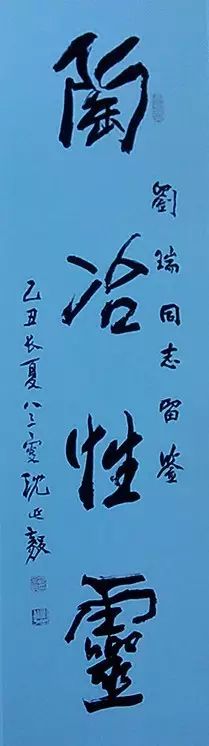 劉瑞同志留鉴
陶冶性靈
乙丑长夏八三叟沈延毅